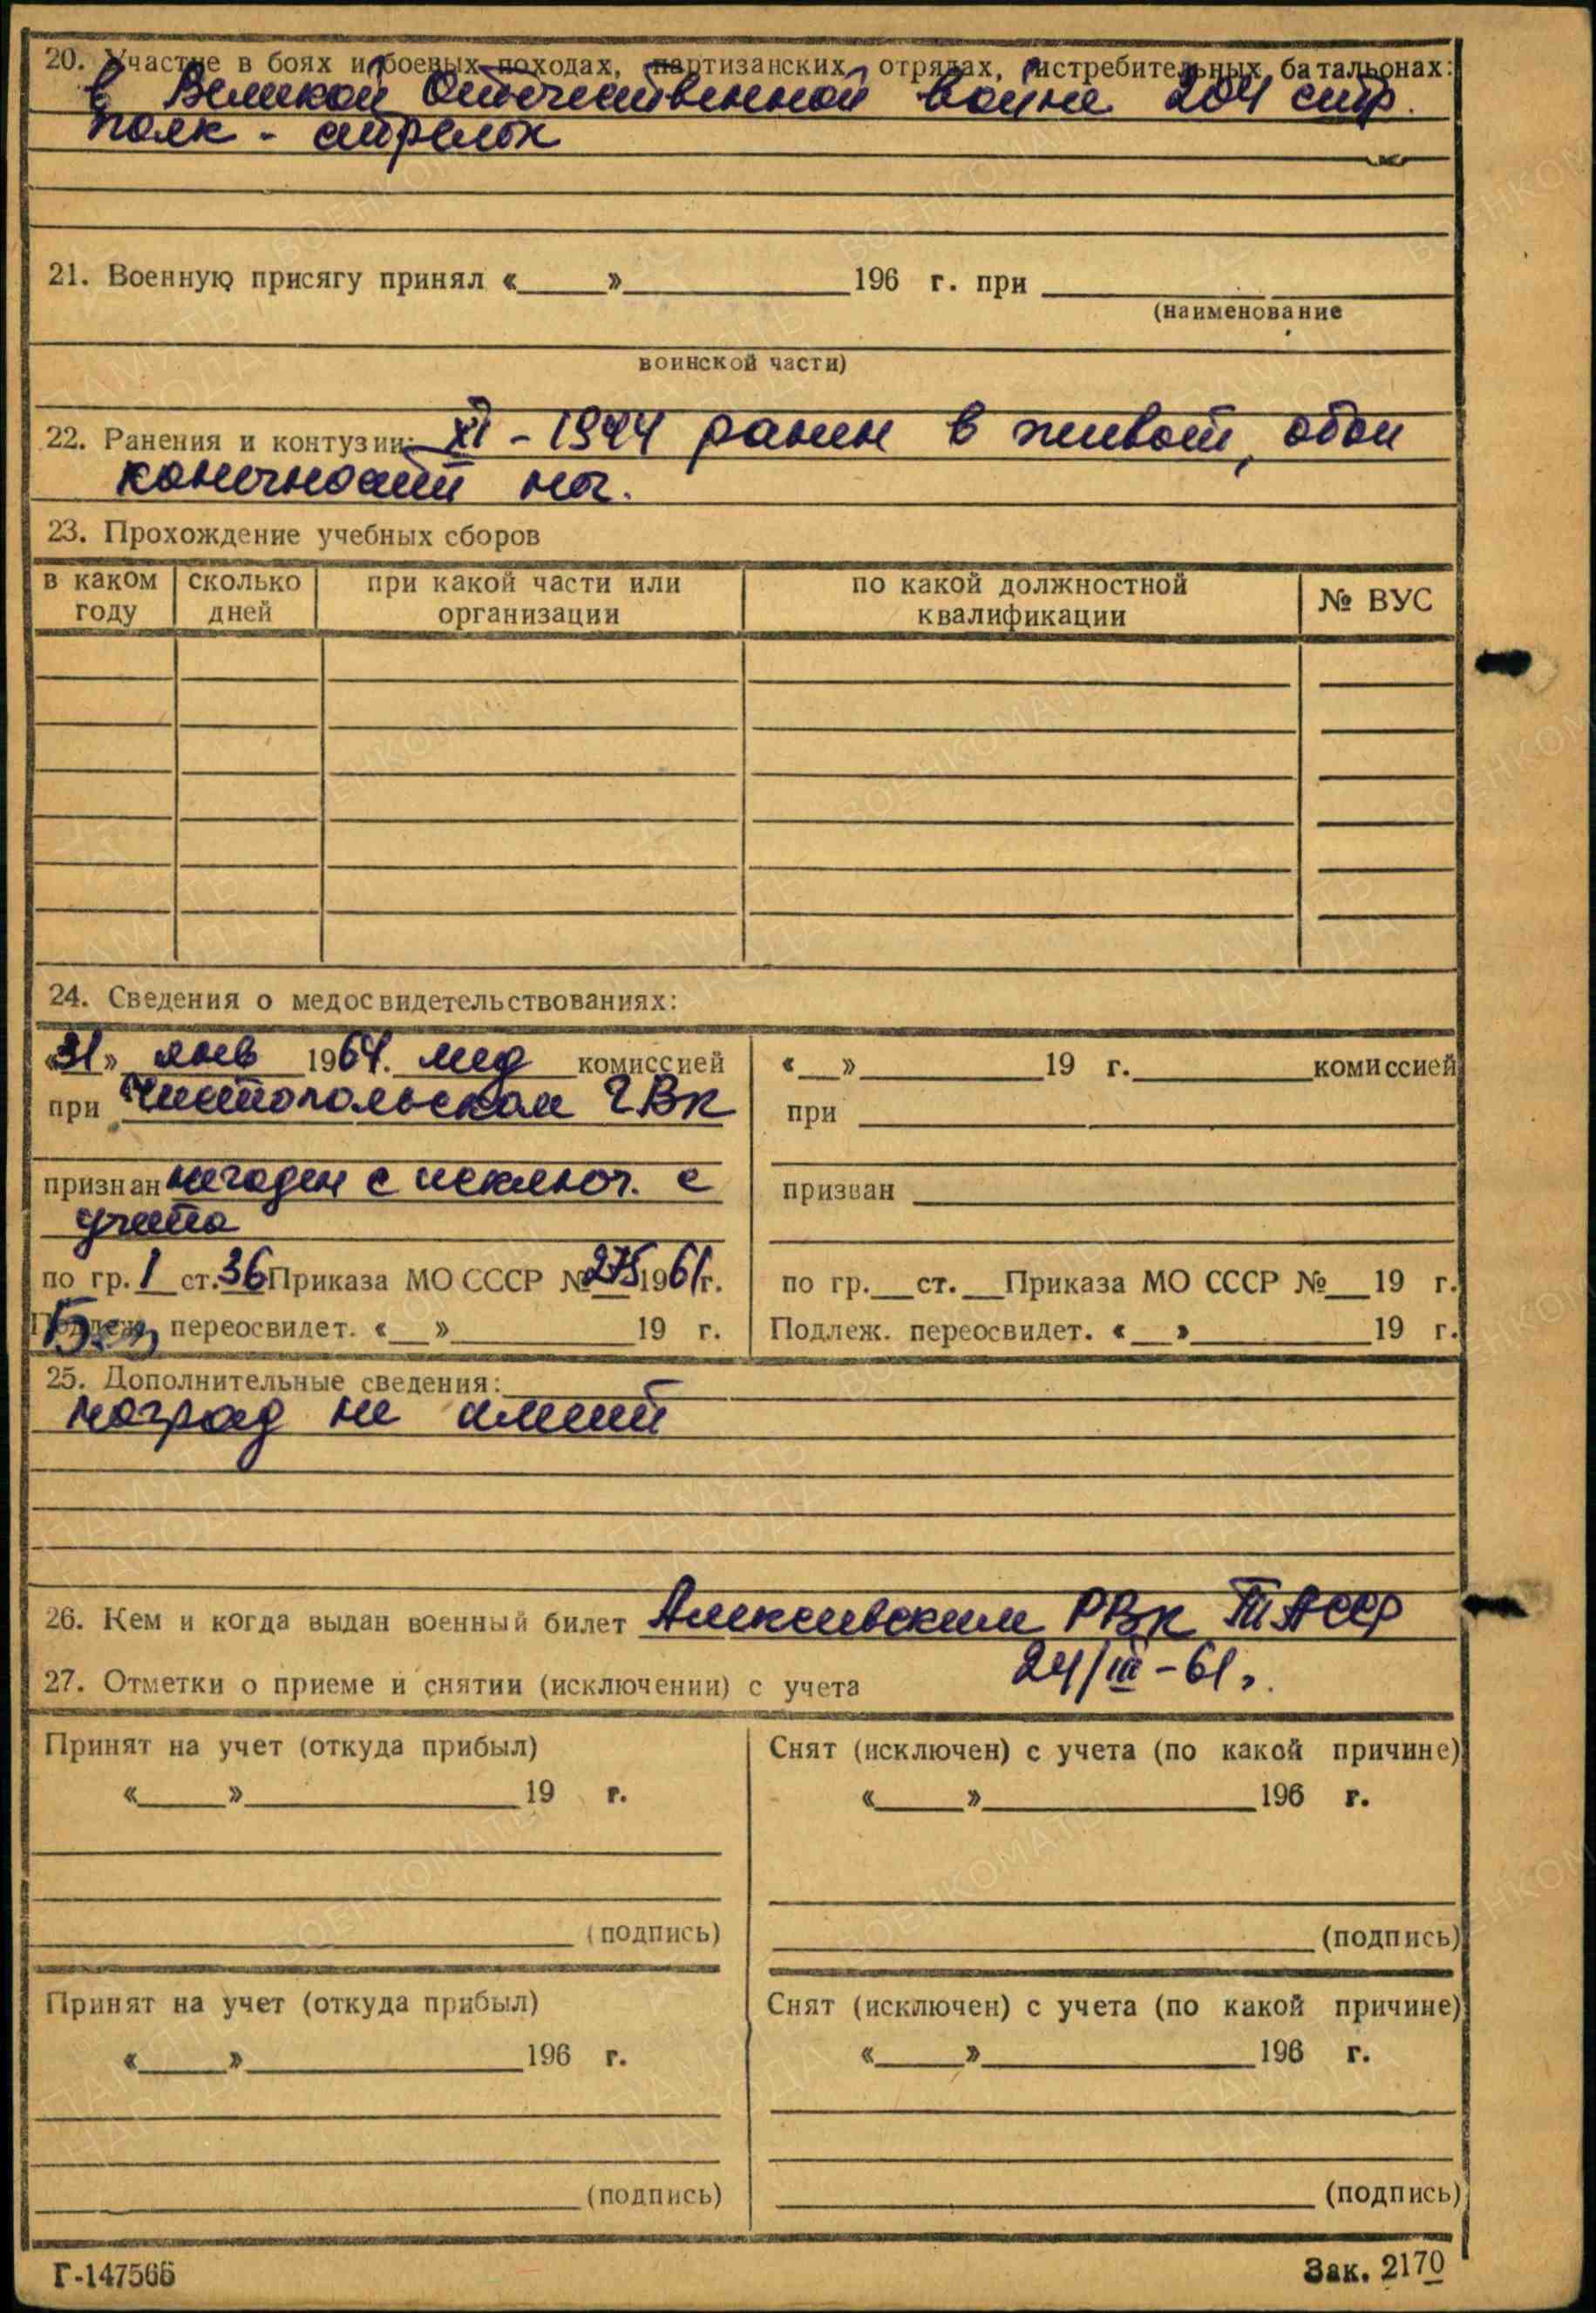 20. Участие в боях и боевых походах, партизанских отрядах, истребительных батальонах:
в Великой Отечественной войне 204 стр.
полк - стрелок
21. Военную присягу принял « » 196 г. при
(наименование
воинской части)
22. Ранения и контузии: XI - 1944 ранен в живот, обои
конечностий ног.
23. Прохождение учебных сборов
в каком году | сколько дней | при какой части или организации | по какой должностной квалификации | № ВУС
24. Сведения о медосвидетельствованиях:
«31» янв 1964. мед комиссией
при Чистопольском ГВК
признан негоден с исключ. с
учета
по гр. 1 ст. 36 Приказа МО СССР № 275 1961г.
Подлеж. переосвидет. « » 19 г.
« » 19 г. комиссией
при
признан
по гр. ст. Приказа МО СССР № 19 г.
Подлеж. переосвидет. « » 19 г.
25. Дополнительные сведения:
наград не имеит
26. Кем и когда выдан военный билет Алексеевским РВК ТАССР
24/III-61г.
27. Отметки о приеме и снятии (исключении) с учета
Принят на учет (откуда прибыл)
« » 19 г.
(подпись)
Снят (исключен) с учета (по какой причине)
« » 196 г.
(подпись)
Принят на учет (откуда прибыл)
« » 196 г.
(подпись)
Снят (исключен) с учета (по какой причине)
« » 196 г.
(подпись)
Г-147566
Зак. 2170